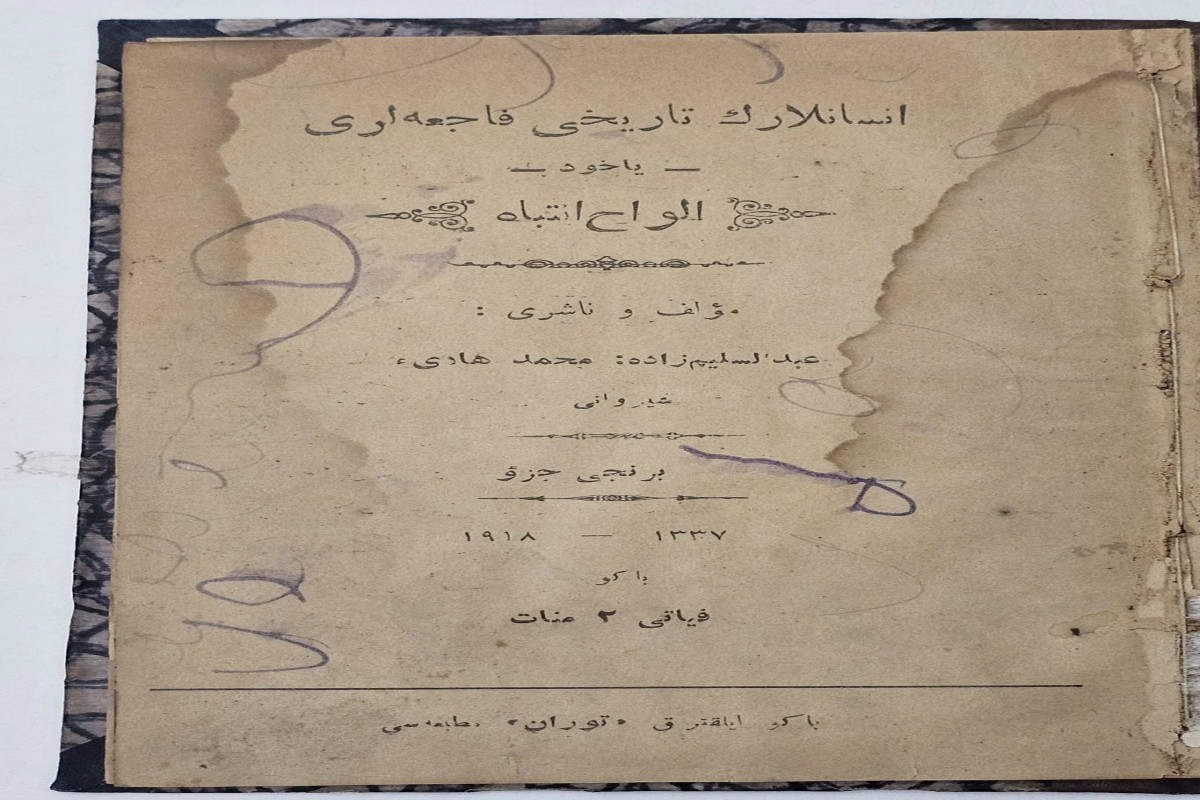 انسانلارك تاريخى فاجعه‌لرى
— ياخود —
الواح انتباه
مؤلف و ناشرى :
عبدالسليم‌زاده: محمد هادىء
شيروانى
برنجى جزؤ
١٣٣٧ — ١٩١٨
باكو
فياتى ٢ منات
باكو ايلقتريق «توران» مطبعه‌سى